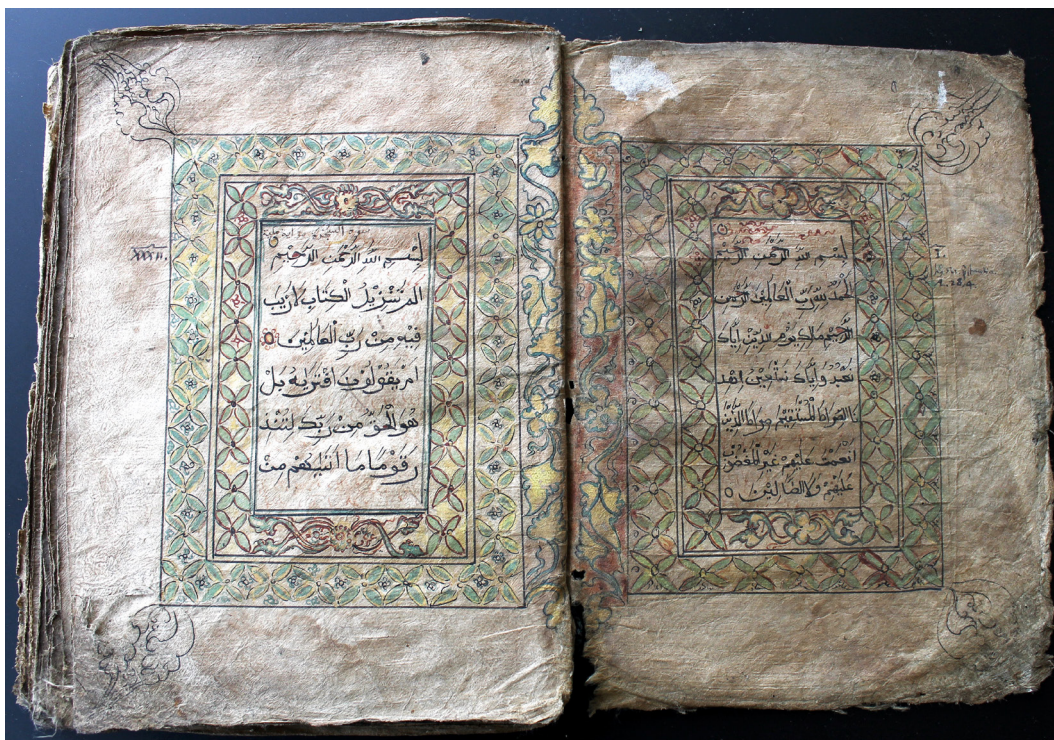 I.
بِسْمِ اللهِ الرَّحْمٰنِ الرَّحِيْمِ
الحمد لله رب العالمين الرحمن
الرحيم مالك يوم الدين اياك
نعبد واياك نستعين اهد
نا الصراط المستقيم صراط الذين
انعمت عليهم غير المغضوب
عليهم ولا الضالين
XXXII.
بسم الله الرحمن الرحيم
الم تنزيل الكتاب لا ريب
فيه من رب العالمين
ام يقولون افتريه بل
هو الحق من ربك لتنذ
ر قوما ما اتيهم من